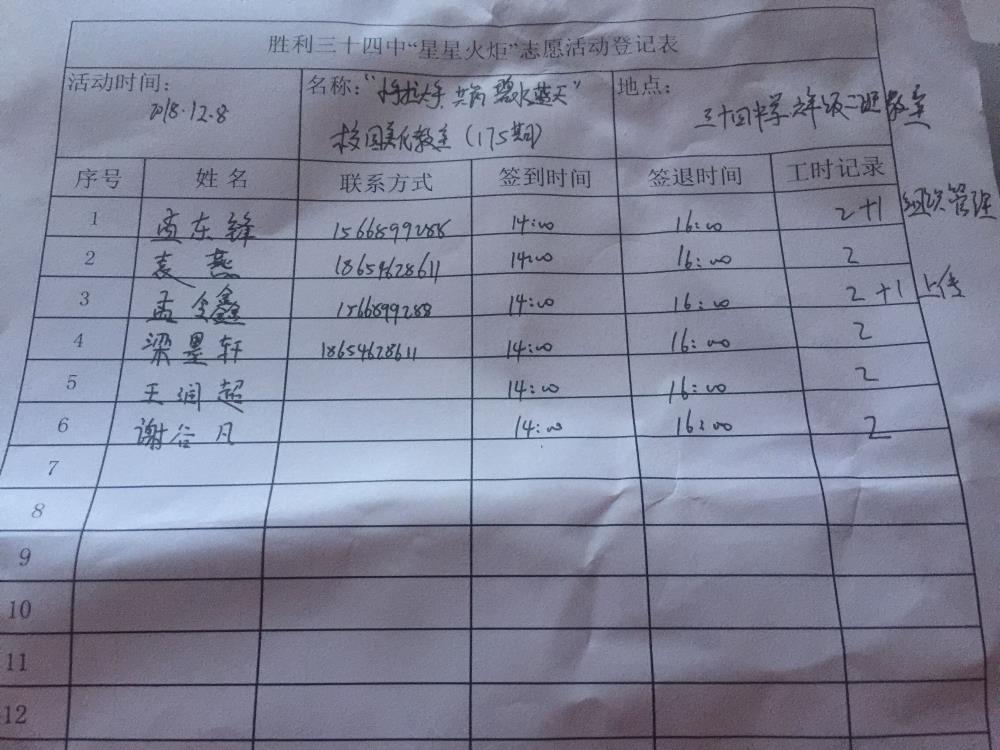 胜利三十四中“星星火炬”志愿活动登记表
活动时间: 名称:“小手拉大手,共筑碧水蓝天” 地点:
2018.12.8 校园美化教室(175期) 三十四中学六年级二班教室
序号 姓名 联系方式 签到时间 签退时间 工时记录
1 孟东锋 15668992888 14:00 16:00 2+1 组织管理
2 袁燕 18654628611 14:00 16:00 2
3 孟令鑫 1566899288 14:00 16:00 2+1 上传
4 梁墨轩 18654628611 14:00 16:00 2
5 王润超 14:00 16:00 2
6 谢谷凡 14:00 16:00 2
7
8
9
10
11
12